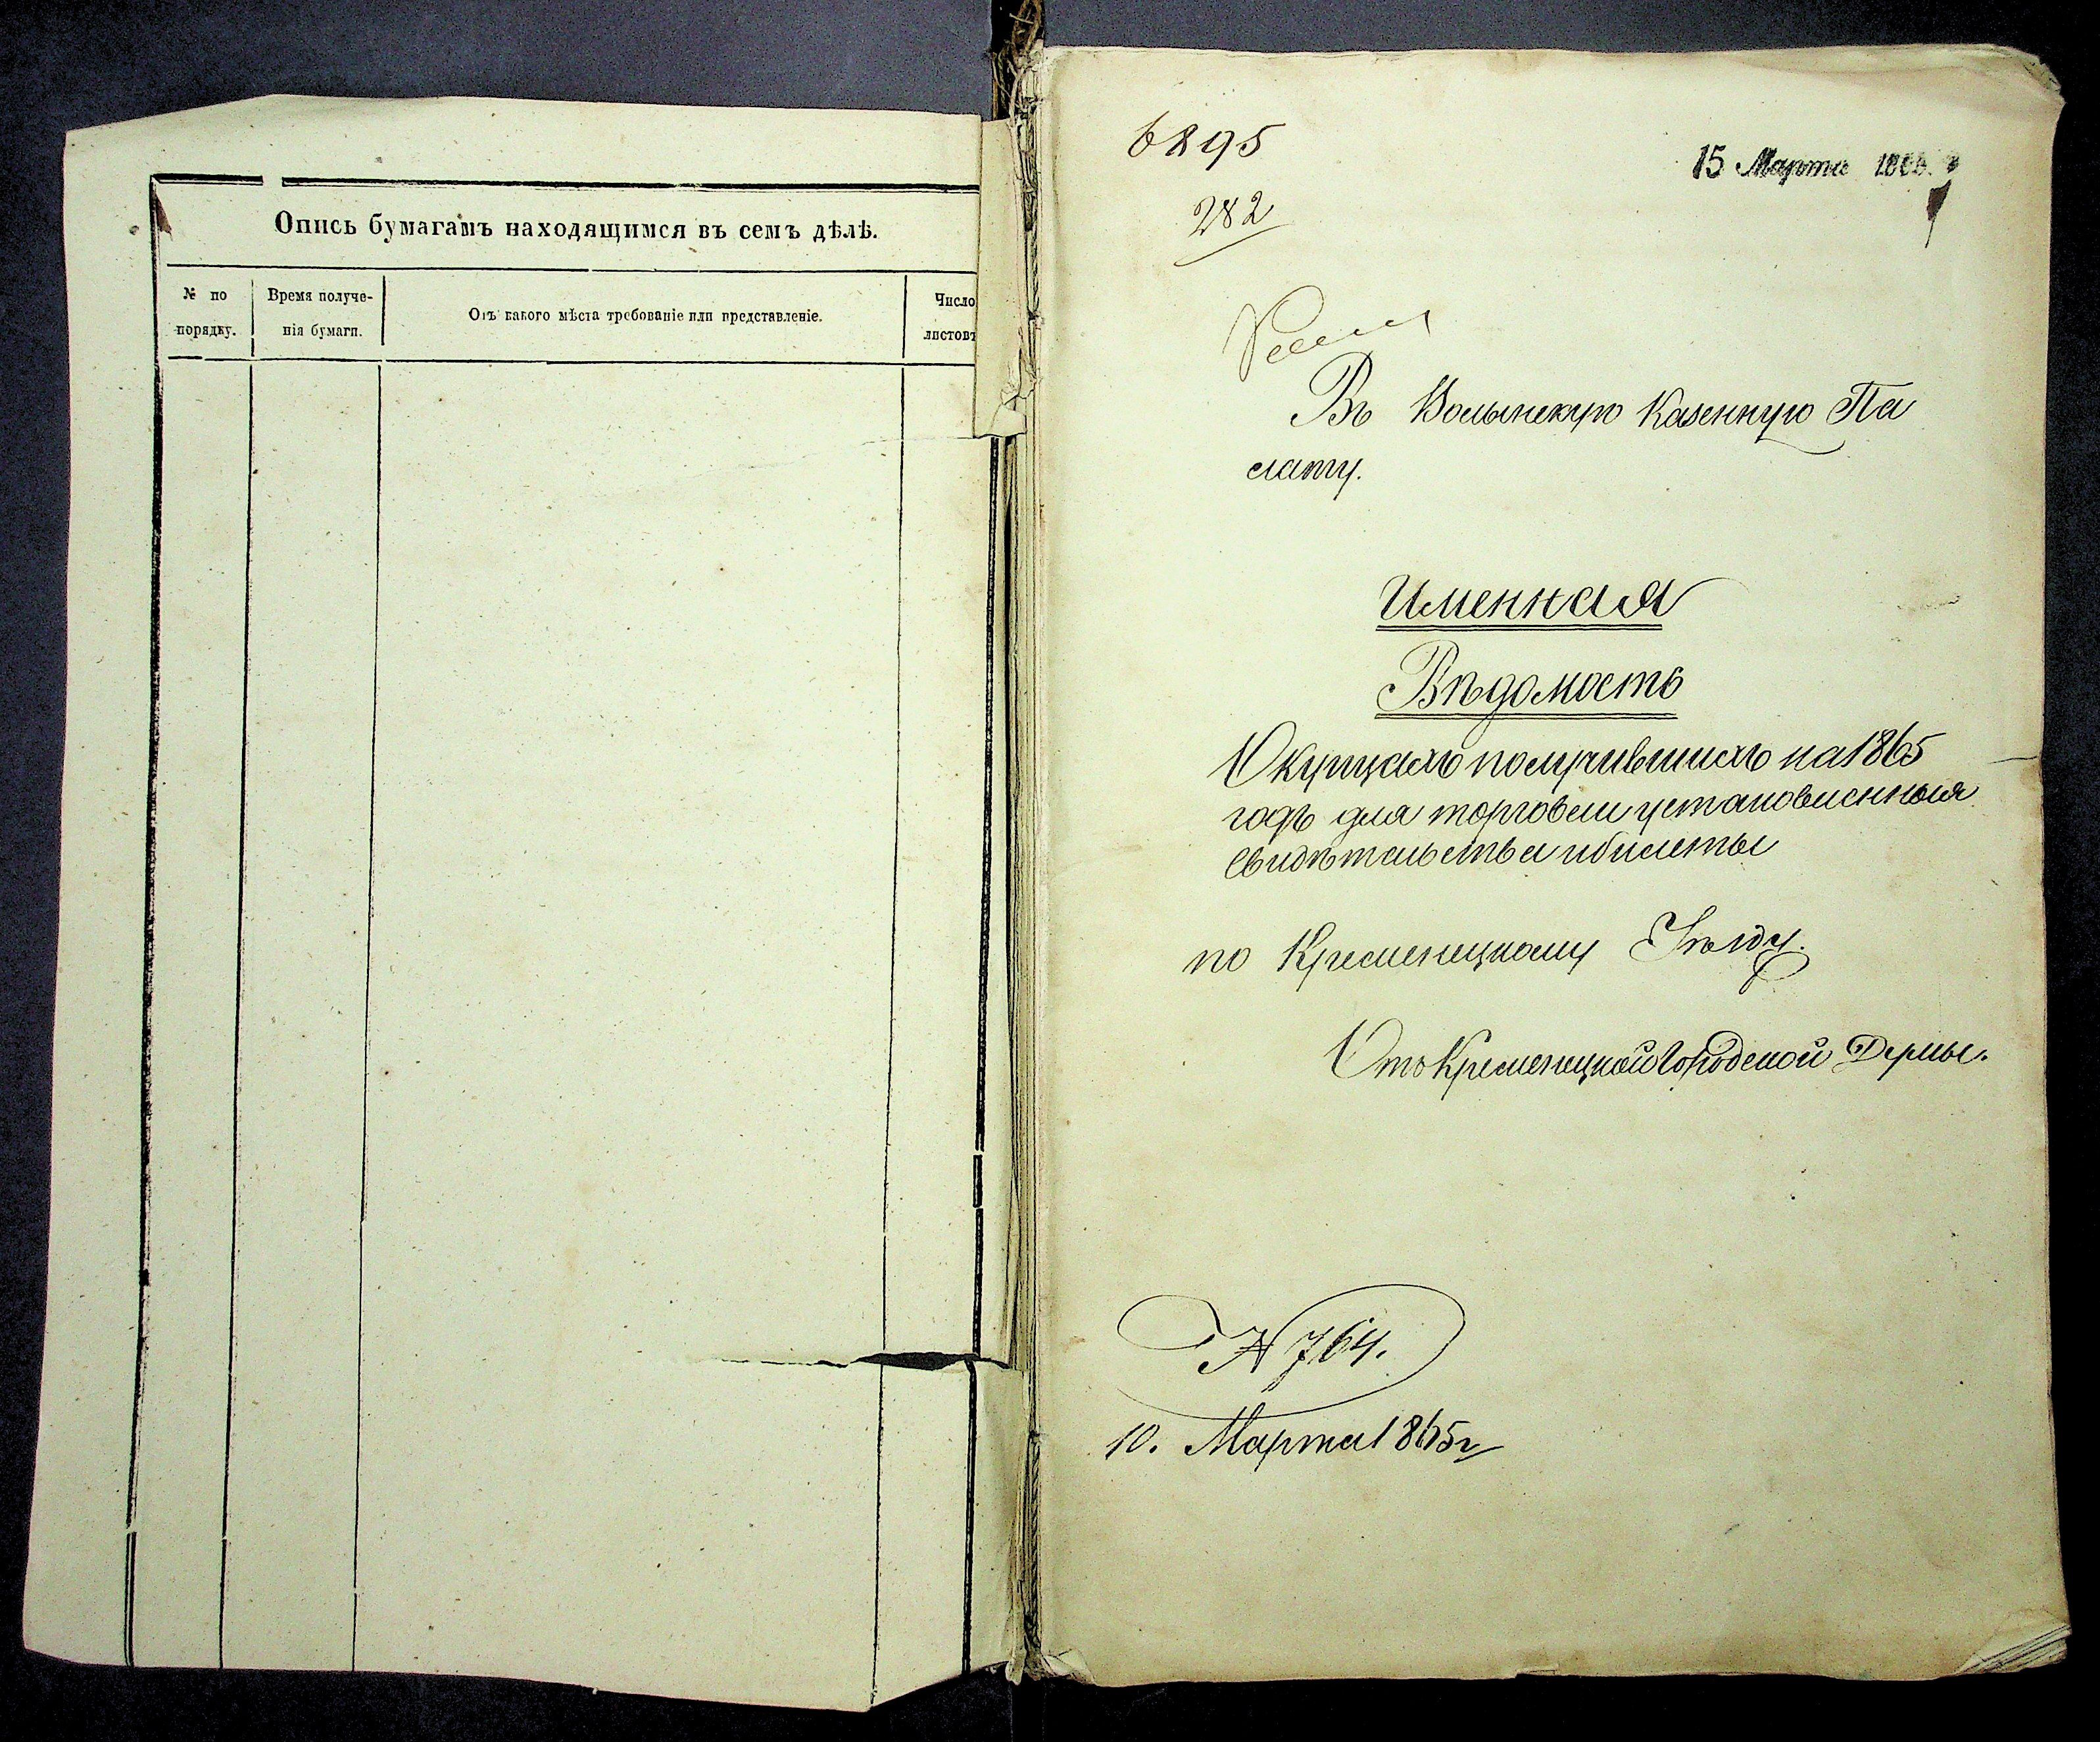 Опись бумагамъ находящимся въ семъ дѣлѣ.
№ по порядку.
Время получе-
нія бумаги.
Отъ какого мѣста требованіе или представленіе.
Число
листовъ
6895
15 Марта
282
Въ Волынскую Казенную Па
лату.
Именная
Вѣдомость
О купцахъ получившихъ на 1865
годъ для торговли установленныя
свидѣтельства и билеты
по Кременецкому Уѣзду.
Отъ Кременецкой Городской Думы.
№ 764.
10. Марта 1865 г